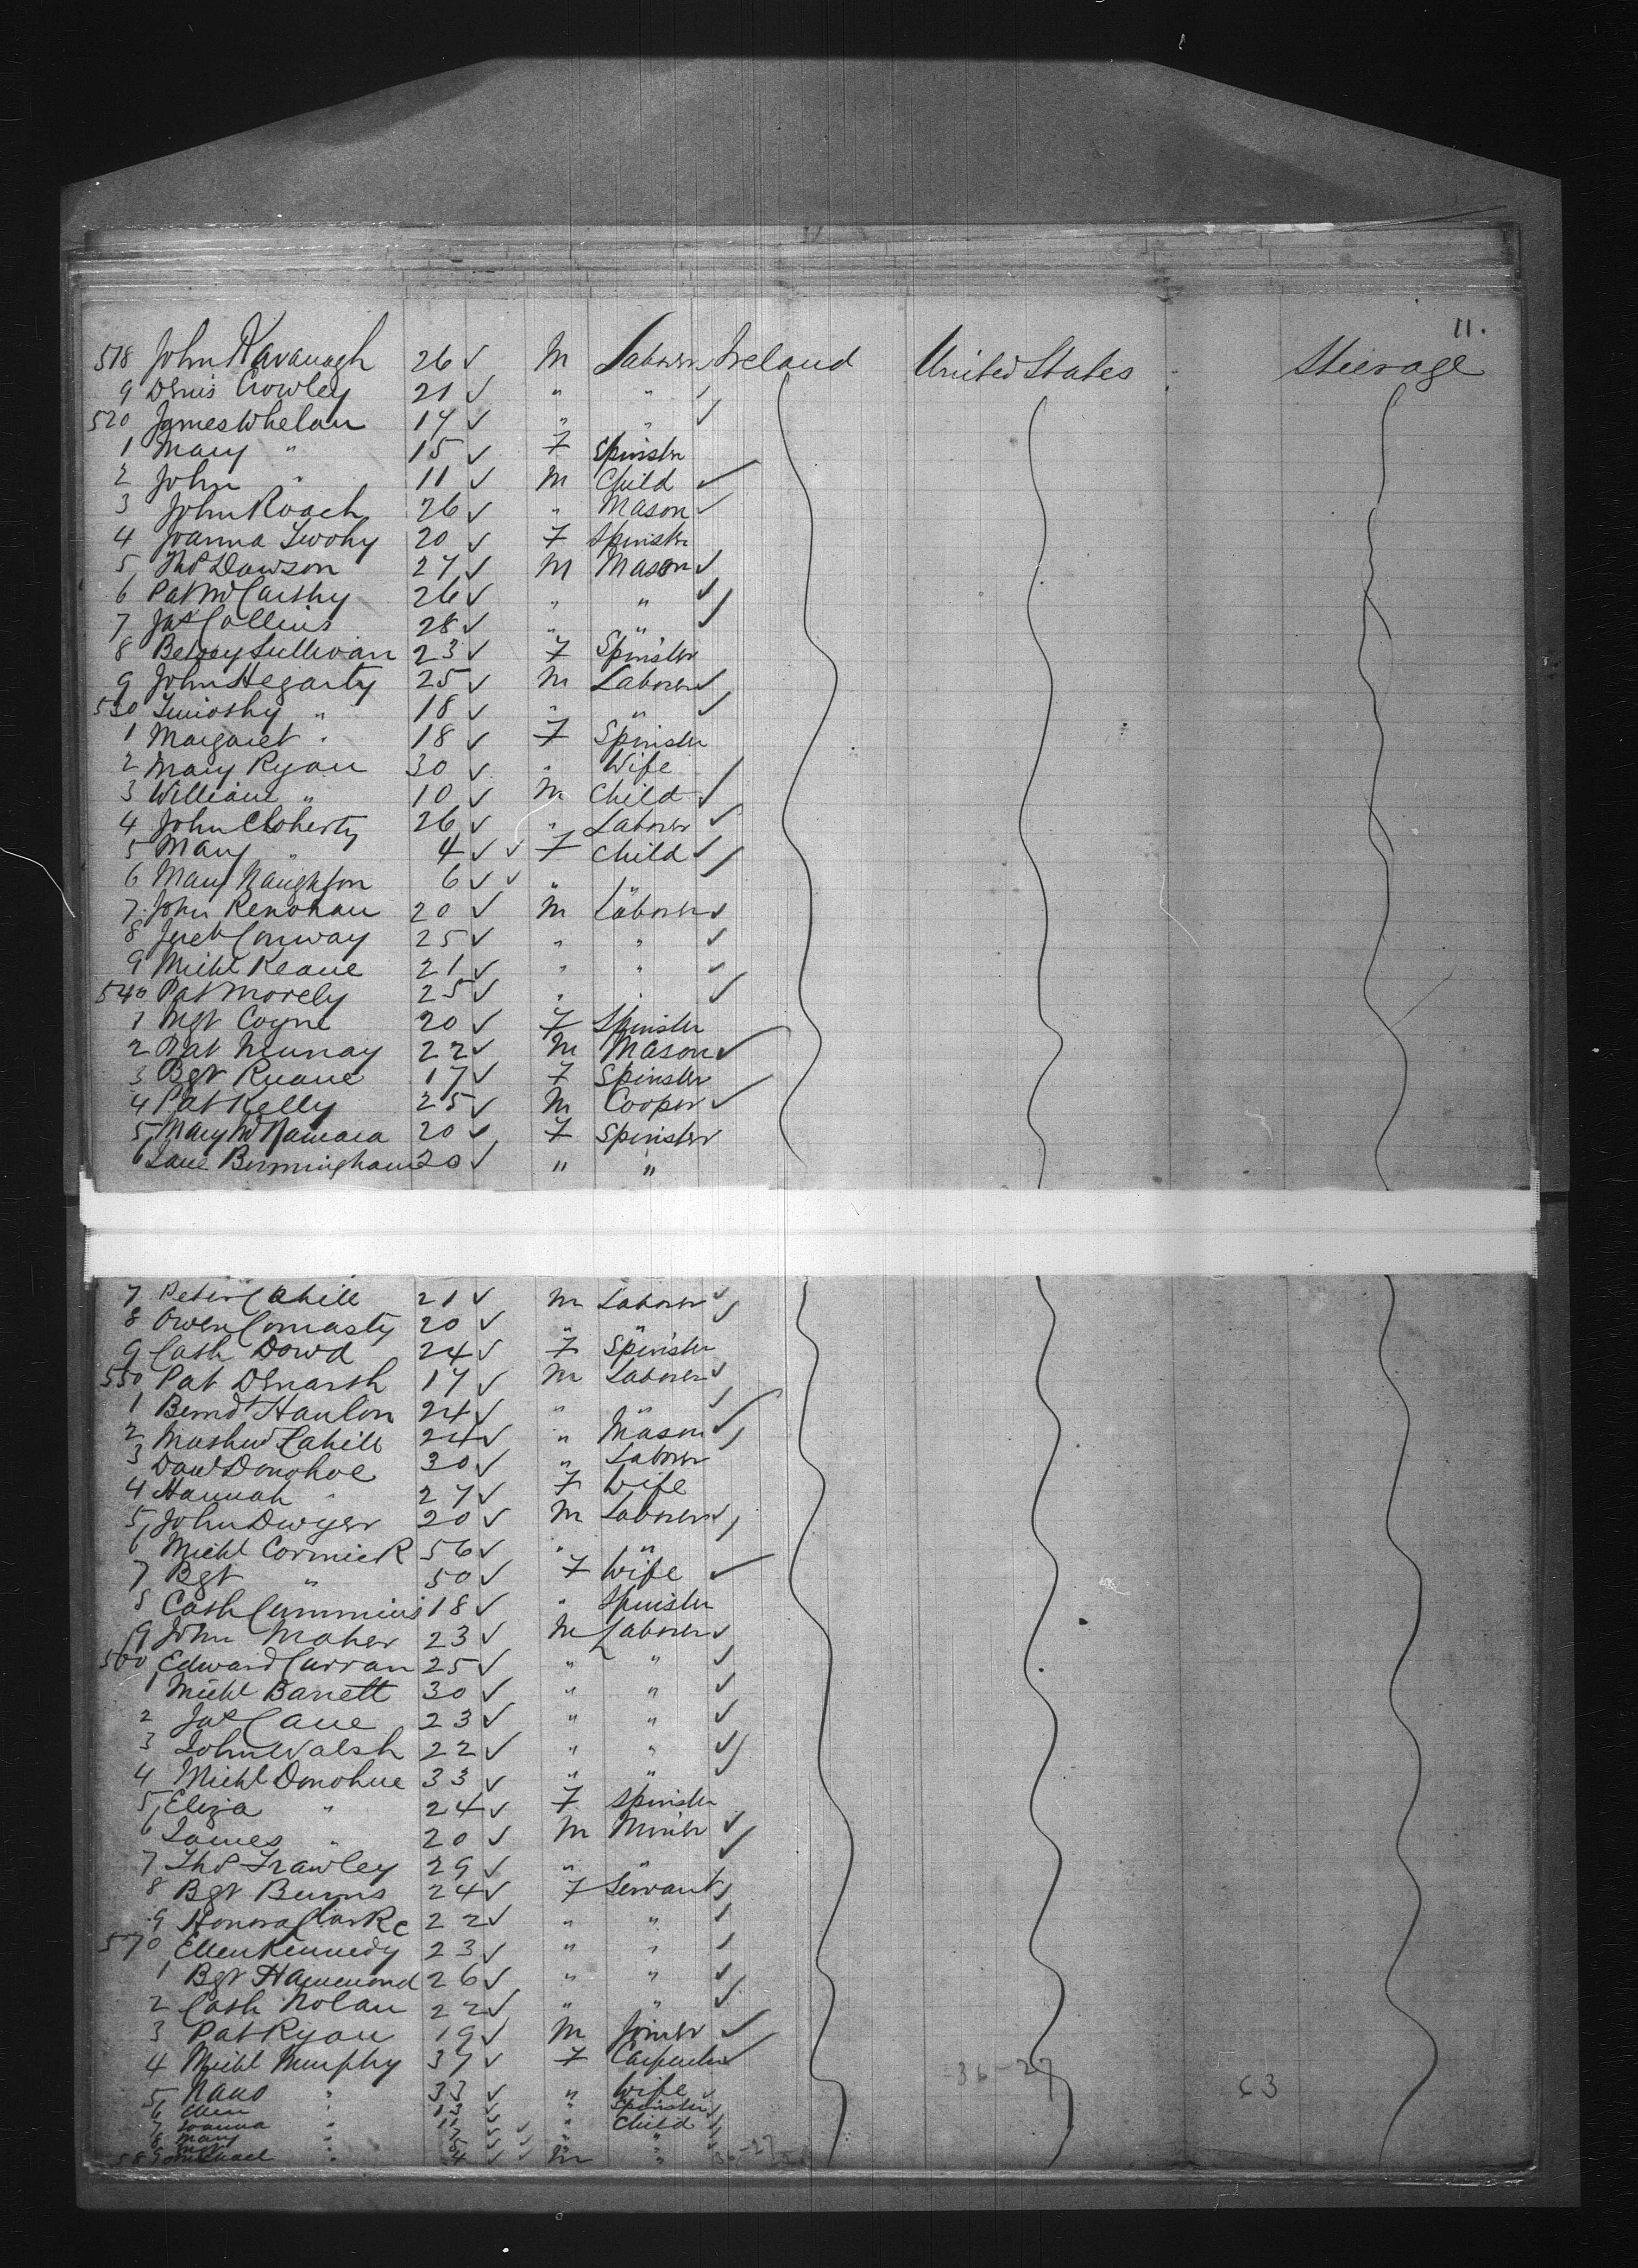 11.
518 John Kavanagh 26 ✓ M Laborer Ireland United States Steerage
9 Denis Crowley 21 ✓ " "
520 James Whelan 17 ✓ " "
1 Mary " 15 ✓ F Spinster
2 John " 11 ✓ M Child
3 John Roach 26 ✓ " Mason
4 Joanna Twohy 20 ✓ F Spinster
5 Thos Dawson 27 ✓ M Mason
6 Pat McCarthy 26 ✓ " "
7 Jas Collins 28 ✓ " "
8 Betsey Sullivan 23 ✓ F Spinster
9 John Hegarty 25 ✓ M Laborer
530 Timothy " 18 ✓ " "
1 Margaret " 18 ✓ F Spinster
2 Mary Ryan 30 ✓ " Wife
3 William " 10 ✓ M Child
4 John Cloherty 26 ✓ " Laborer
5 Mary " 4 ✓ ✓ F Child
6 Mary Naughton 6 ✓ ✓ " "
7 John Renohan 20 ✓ M Laborer
8 Conway 25 ✓ " "
9 Michl Keane 21 ✓ " "
540 Pat Morely 25 ✓ " "
1 Mgt Coyne 20 ✓ F Spinster
2 Pat Murray 22 ✓ M Mason
3 Bgt Ruane 17 ✓ F Spinster
4 Pat Kelly 25 ✓ M Cooper
5 Mary McNamara 20 ✓ F Spinster
6 Jane Birmingham 20 ✓ " "
7 Peter Cahill 21 ✓ M Laborer
8 Owen Comasty 20 ✓ " "
9 Cath Dowd 24 ✓ F Spinster
550 Pat 17 ✓ M Laborer
1 Bernd Hanlon 24 ✓ " "
2 Mathew Cahill 24 ✓ " Mason
3 Danl Donohoe 30 ✓ " Laborer
4 Hannah " 27 ✓ F Wife
5 John Dwyer 20 ✓ M Laborer
6 Michl Cormick 56 ✓ " "
7 Bgt " 50 ✓ F Wife
8 Cath Cummins 18 ✓ " Spinster
9 John Maher 23 ✓ M Laborer
560 Edward Curran 25 ✓ " "
1 Michl Barrett 30 ✓ " "
2 Jas Cane 23 ✓ " "
3 John Walsh 22 ✓ " "
4 Michl Donohue 33 ✓ " "
5 Eliza " 24 ✓ F Spinster
6 James " 20 ✓ M Miner
7 Thos Frawley 29 ✓ " "
8 Bgt Burns 24 ✓ F Servant
9 Honora Clarke 22 ✓ " "
570 Ellen Kennedy 23 ✓ " "
1 Bgt Hammond 26 ✓ " "
2 Cath Nolan 22 ✓ " "
3 Pat Ryan 19 ✓ M Joiner
4 Michl Murphy 37 ✓ F Carpenter
36-27 63
5 Nano " 33 ✓ " Wife
6 Ellen " 13 ✓ " Spinster
7 Joanna " 11 ✓ " Child
8 Mary " 7 ✓ ✓ " "
Michael " 4 ✓ ✓ M "